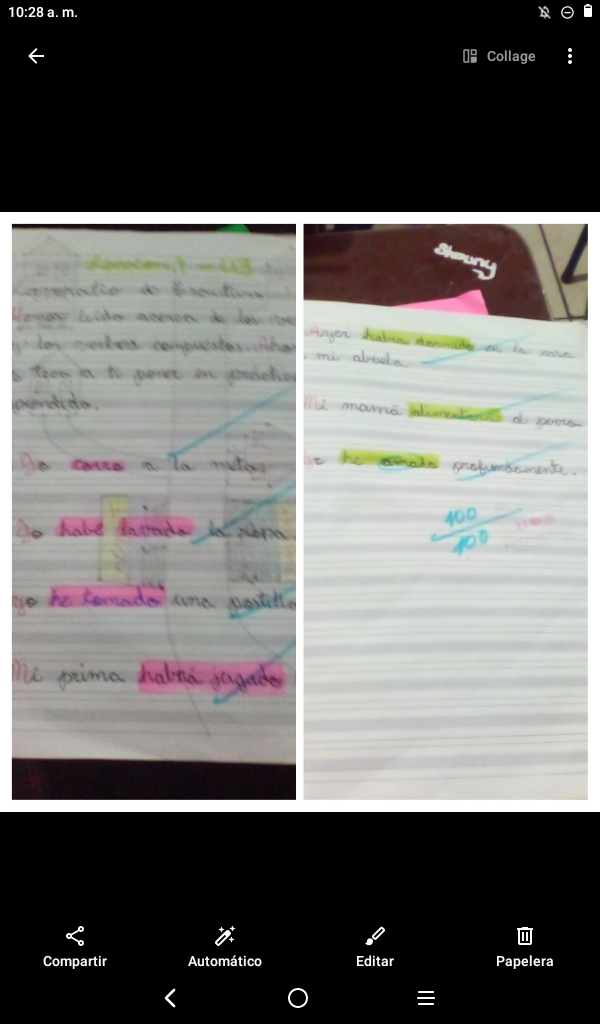 10:28 a. m.
Collage
Lección 1 - U3
Laboratorio de Escritura.
Hemos leído acerca de los ve
y los verbos compuestos. Aho
a toca a ti poner en práctica
prendido.
Yo corro a la metas
Yo habé lavado la ropa.
Yo he tomado una pastilla
Mi prima habrá jugado
Shanny
Ayer había dormido en la casa
mi abuela.
Mi mamá alimentará el perro
Yo he amado profundamente.
100
100
Compartir
Automático
Editar
Papelera